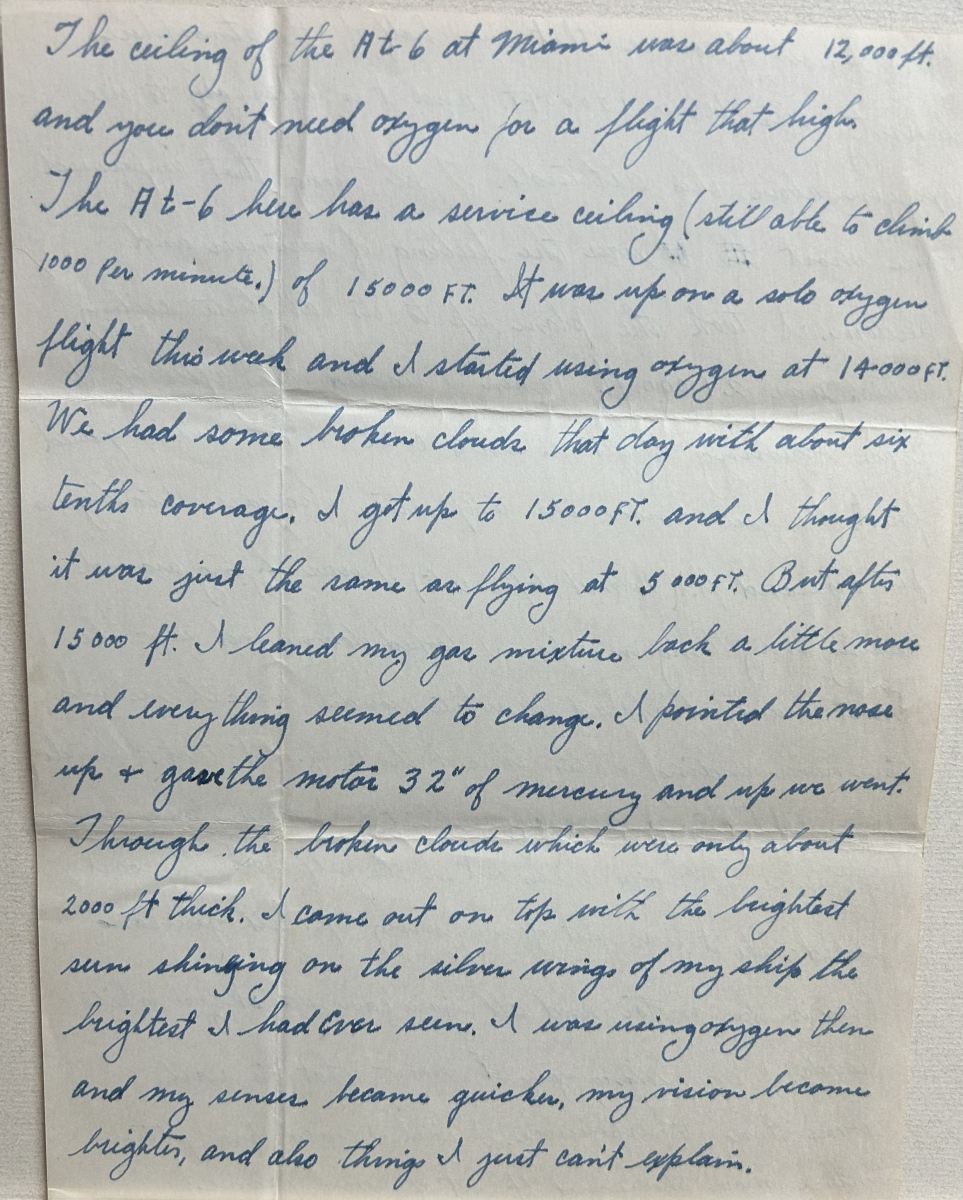 The ceiling of the At-6 at Miami was about 12,000 ft.
and you don't need oxygen for a flight that high.
The At-6 here has a service ceiling (still able to climb
1000 Per minute.) of 15000 FT. It was up on a solo oxygen
flight this week and I started using oxygen at 14000 FT.
We had some broken clouds that day with about six
tenths coverage. I got up to 15000 FT. and I thought
it was just the same as flying at 5000 FT. But after
15000 ft. I leaned my gas mixture back a little more
and everything seemed to change. I pointed the nose
up + gave the motor 32" of mercury and up we went.
Through the broken clouds which were only about
2000 ft thick. I came out on top with the brightest
sun shinging on the silver wings of my ship the
brightest I had Ever seen. I was using oxygen then
and my senses became quicker, my vision become
brighter, and also things I just can't explain.